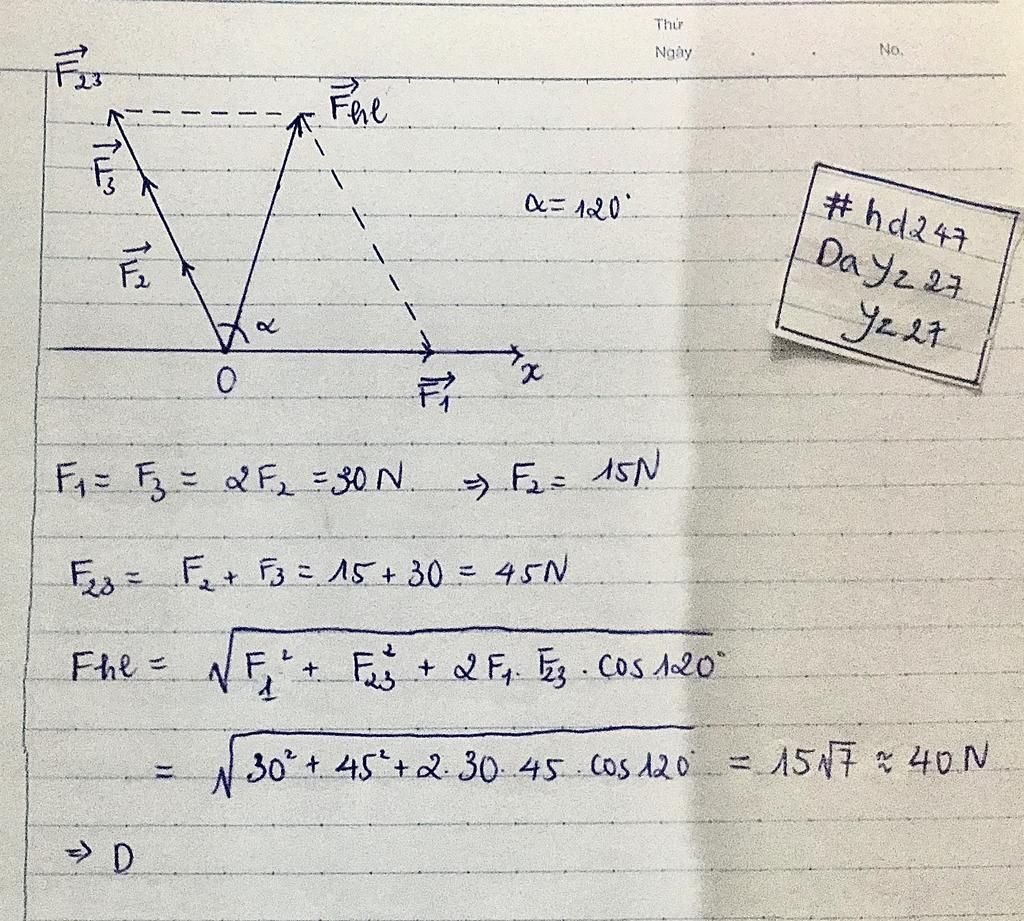 Thứ
Ngày . . No.
F₂₃→
Fhl→
F₃→
α = 120°
F₂→
α
O
x
F₁→
#hd247
DaYz27
Yz27
F₁ = F₃ = 2F₂ = 30N ⇒ F₂ = 15N
F₂₃ = F₂ + F₃ = 15 + 30 = 45N
Fhl = √(F₁² + F₂₃² + 2F₁.F₂₃.cos120°)
= √(30² + 45² + 2.30.45.cos120°) = 15√7 ≈ 40N
⇒ D